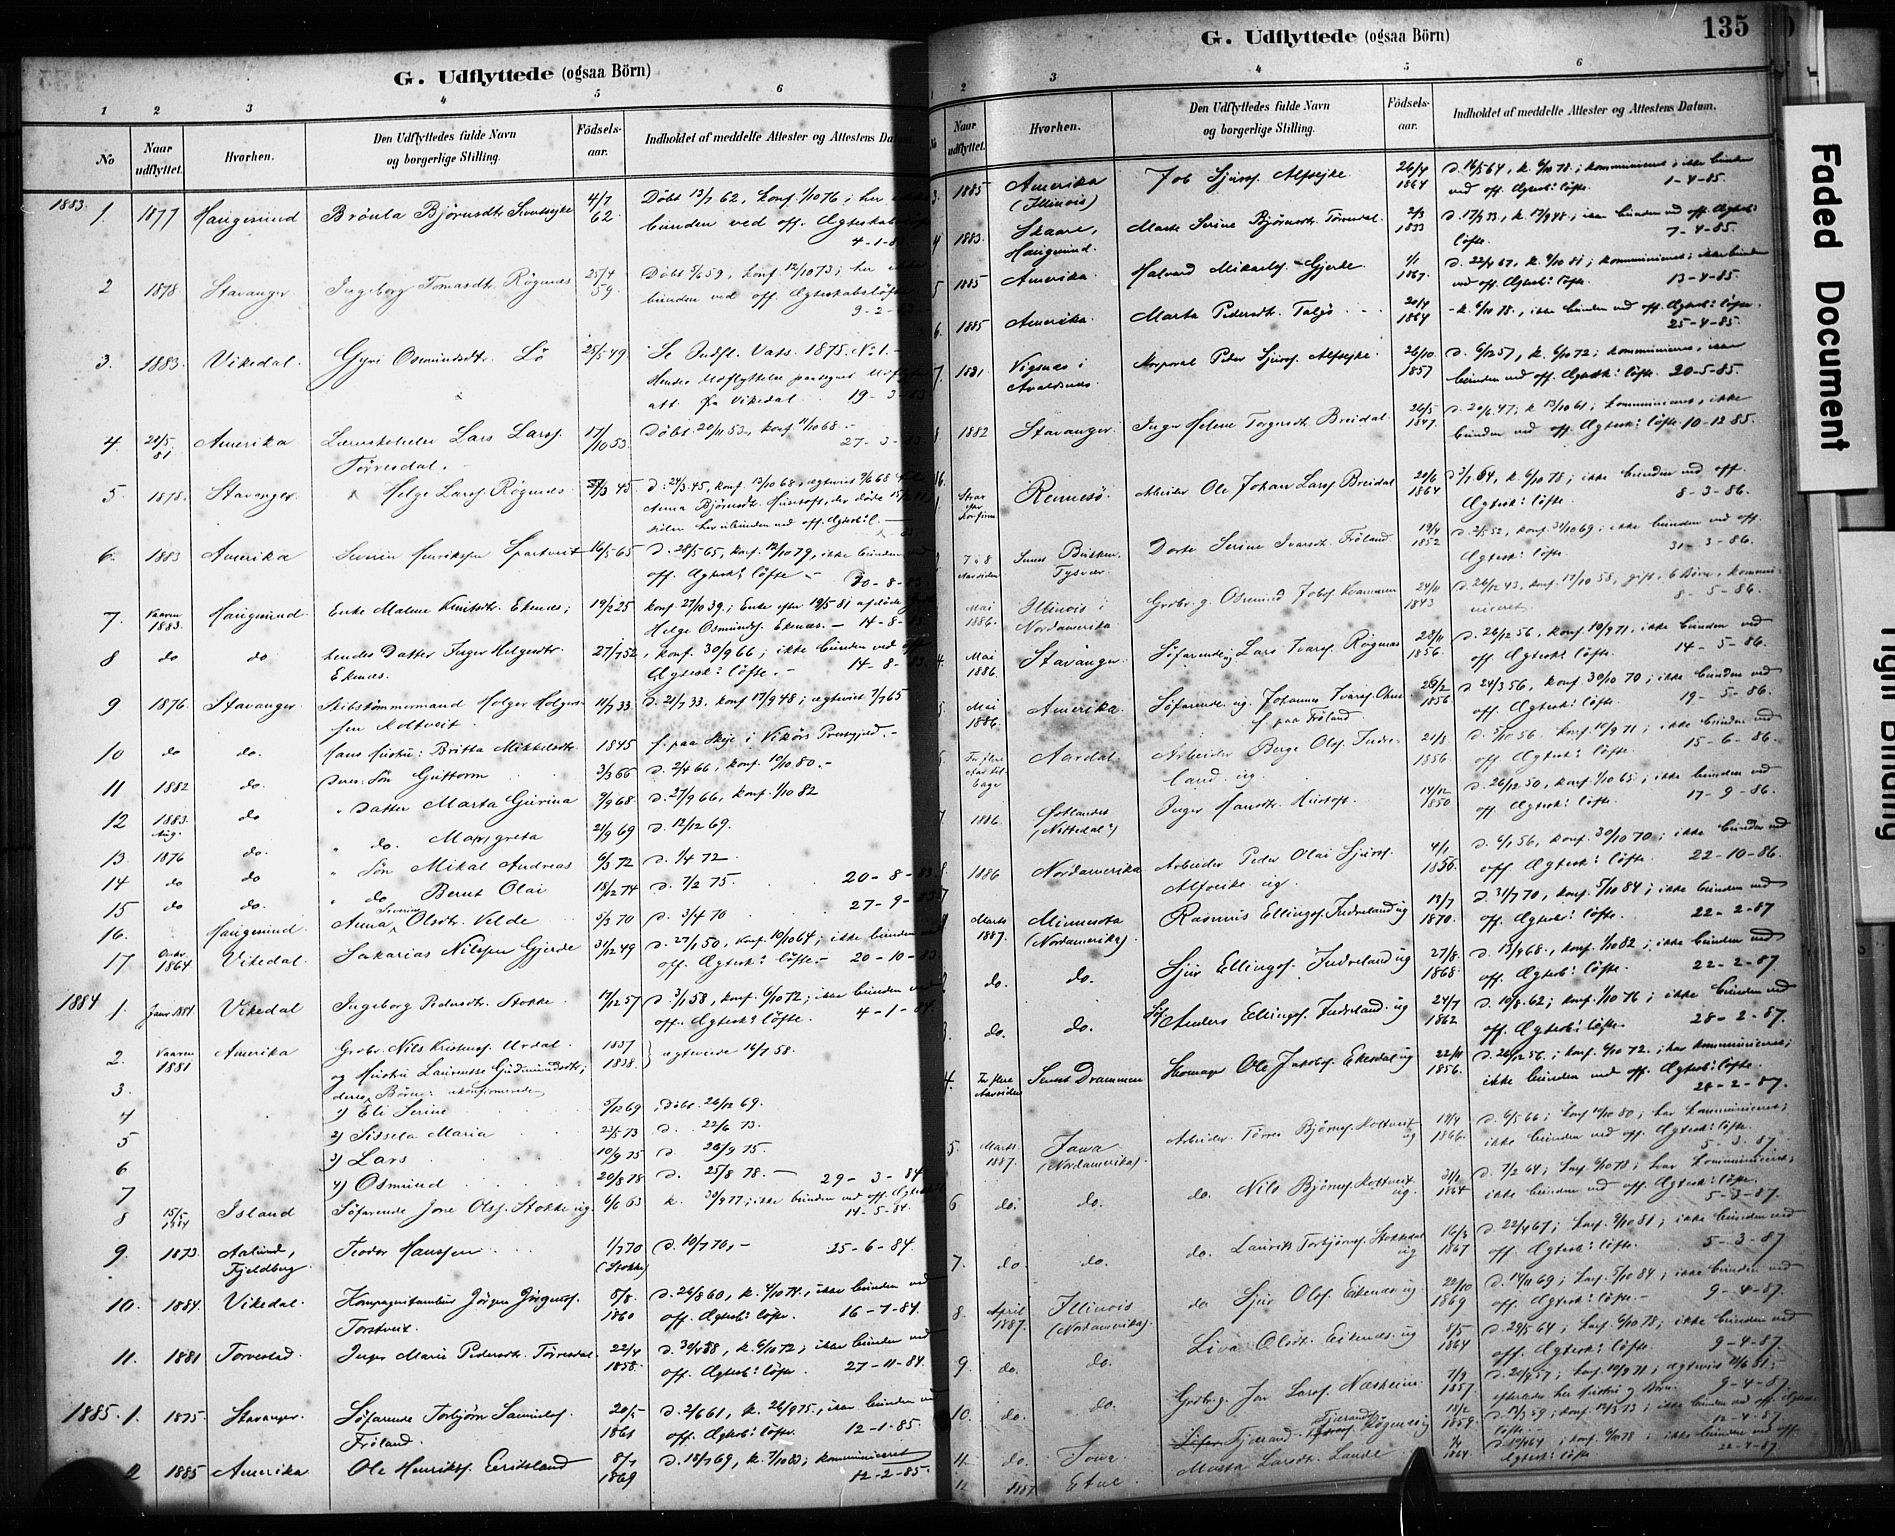 G. Udflyttede (ogsaa Börn)
1 2 3 4 5 6
No
Naar udflyttet.
Hvorhen.
Den Udflyttedes fulde Navn og borgerlige Stilling.
Födsels-aar.
Indholdet af meddelte Attester og Attestens Datum.
1883. 1. 1877 Haugesund Brönla Björnsdt. 4/7 62 Döbt 13/7 62, konf. 1/10 76; her
bunden ved off. Ægteskabs
4-1-83
2 1878 Stavanger Ingeborg Tomasdt. Rögnes 25/4 59. Döbt 59, konf. 12/10 73; her ikke
bunden ved off. Ægteskabslöfte
9-2-83
3. 1883. Vikedal. Gyri Osmundsdt. Lö 28/5 49 Se Indfl. Vats. 1875. No 1.-
att. fra Vikedal. 19-3-83
4. 21/5 81 Amerika Lars Larsf. 17/10 53. Döbt 20/11 53, konf. 1/10 68.-
Törresdal. 27-3-83
5 1878. Stavanger. Helge Larsf. Rögnes 27/3 45 D. 24/3 45, konf. 13/10 68
Anna Björnsdt.
6. 1883 Amerika Severin Henriksen 16/5 65 D. 28/5 65, konf. 12/10 79, ikke bunden ved
off. Ægtesk: löfte - 30-8-83
7. Vaaren 1883. Haugesund. Enke Malene Knutsdt. Ekenes; 19/2 25 konf. 27/10 39.; Enke efter 19/5 81 afdöde
Helge Osmundsf. Ekenes. - 14-8-83
8 do do hendes Datter Inger Helgesdt. 27/7 52, konf. 30/9 66; ikke bunden ved off
Ekenes. Ægtesk: löfte. - 14-8-83.
9 1876. Stavanger. Skibstömmermand Holger Holger- 11/7 33 D. 21/7 33. konf 17/9 48; ægteviet 7/7 65
sen Koltveit.
10 do do. Hans Hustru: Britta Mikkelsdt. 1845 f. paa Skeje i Vikörs Præstgjeld. -
11 1882 do. Deres Sön Guttorm 3/3 66 D. 2/4 66, konf. 10/10 80. -
12 1883. Aug. do " Datter Marta Gurina 9/9 68. D. 27/9 66, konf. 1/10 82
13. 1876 do. " do. Margreta 21/9 69 D. 12/12 69.
14 do do " Sön Mikal Andreas 6/3 72 D. 1/4 72.
15 do do. " do Bernt Olai 18/12 74 D. 7/2 75. 20-8-83
16. Haugesund. Anna Severine Olsdt. Velde 3/3 70 D. 3/4 70 27-9-83
17 1864 Vikedal. Sakarias Nilssen Gjerde 31/12 49 D. 27/1 50, konf. 10/10 64; ikke bunden ved
off. Ægtesk: löfte. - 20-10-83
1884 1. Janr. 1884. Vikedal Ingeborg Pedersdt. Stokke. 17/12 57 D. 3/1 58, konf. 6/10 72; ikke bunden ved
off. Ægtesk: löfte. 4-1-84
2. Vaaren 1881 Amerika Grbr. Nils Kristensf. Urdal. 1837 } ægteviede 16/7 58.
3. og Hustru Laurense Gudmundsdt; 1838.
deres Börn: ukonfirmerede
4 1) Eli Serine 3/12 69 ; Döbt. 26/12 69.
5 2) Sissela Maria 23/5 73 D. 22/6 73.
6 3) Lars 10/9 75 D. 26/9 75.
7 4) Osmund 20/8 78 D. 25/8 78. - 29-3-84
8 15/5 1884 Island Söfarende Jone Olsf. Stokke ug. 6/6 63 k. 30/9 77; ikke bunden ved off. Ægtesk
14-5-84.
9. 1873. Aalund, Fjeldberg. Teodor Hanssen 1/7 70 (Stokke) D. 10/7 70, - 25-6-84.
10. 1884. Vikedal. Kompagnitambur Jörgen Jörgensf. 5/8. 1860 D. 26/8 60, k. 4/10 74, ikke bunden ved
Torstveit. off. Ægtesk: löfte. 16-7-84.
11. 1881 Torvestad. Inger Marie Pedersdt. Törresdal. 22/4 1858. D. 30/4 58, k. 6/10 72; ikke bunden ved
off. Ægtesk: löfte. 27-11-84.
1885. 1. 1875. Stavanger. Söfarende Torbjörn Samuelsf. 20/5 1861 D. 2/6 61, k. 26/9 75, ikke bunden ved
Fröland. off. Ægtesk: löfte. 12-1-85.
2 1885 Amerika Ole Henriksf. Eeriksland 8/7 1869 D. 18/7 69, k. 7/10 83; kommuniceret
12-2-85.
G. Udflyttede (ogsaa Börn)
135
2 3 4 5 6
Naar udflyttet.
Hvorhen.
Den Udflyttedes fulde Navn og borgerlige Stilling.
Födsels-aar.
Indholdet af meddelte Attester og Attestens Datum.
3. 1885 Amerika (Illinois) Job Sjursf. Alfsejke. 26/4 1864 D. 16/5 64, k. 6/10 78; kommuniceret; ikke bunden
ved off. Ægtesk: löfte. 1-4-85.
4 1883. Skaare, Haugesund. Marta Serine Björnsdt. Törresdal. 2/3 1833 D. 17/3 33, k. 17/9 48; ikke bunden ved off. Ægtesk:
löfte. 7-4-85.
5 1885 Amerika. Halvard Mikaelsf. Gjerde. 1/1 1867. D. 22/4 67, k. 9/10 81; kommuniceret; ikke bunden
ved off. Ægtesk: löfte. 13-4-85.
6. 1885 Amerika. Marta Pedersdt. Talgö 20/4 1864 - k. 6/10 78., ikke bunden ved off. Ægtesk: löfte.
25-4-85.
7. 1881 Vigsnes i Avaldsnes. Korporal Peder Sjursf. Alfsejke. 26/10 1857 D. 6/12 57, k. 6/10 72; kommuniceret, ikke
bunden ved off. Ægtesk: löfte. 20-5-85.
1882 Stavanger. Inger Helene Torgersdt. Breidal 26/5 1847. D. 20/6 47; k 13/10 61; kommuniceret, ikke
bunden ved off. Ægtesk: löfte 10-12 85.
Strax efter Konfirm. Rennesö. Arbeider Ole Johan Larsf Breidal 20/6 1864 D 3/7 64, k. 6/10 78; ikke bunden ved off.
Ægtesk: löfte. 8-3-86.
7 a 8 Aar siden Tysvær. Dorte Serine Ivarsdt. Fröland. 19/4 1852 D. 2/5 52, konf. 31/10 69; ikke bunden ved off.
Ægtesk: löfte. 31-3-86.
Mai 1886. Illinois i Nordamerika Grdbr. g. Osmund Jobsf. Kvamen 24/11 1843 D. 26/12 43, konf. 17/10 58, gift, 6 Börn, kommu-
niceret. 8-5-86.
4. Mai 1886. Stavanger. Söfarende ug. Lars Ivarsf. Rögnes 28/11 1856. D. 26/12 56, konf. 10/9 71, ikke bunden ved
off. Ægtesk: löfte. 14-5-86.
5 Mai 1886. Amerika. Söfarende ug. Johannes Ivarsf. 28/2 1856 D 24/3 56, konf. 30/10 70; ikke bunden ved
f. paa Fröland. off. Ægtesk: löfte. 19-5-86.
For flere Aar tilbage Aardal Arbeider Berge Olsf. Indre- 21/8 1856 D. 5/10 56. konf. 10/9 71; ikke bunden ved
land. ug. off. Ægtesk: löfte. 15-6-86.
7 1886. Östlandet (Nittedal?) Inger Hansdt. Hustoft. 14/12 1850 D. 26/12 50, konf. 1/10 65; ikke bunden ved
off. Ægtesk: löfte. 17-9-86.
8. 1886 Nordamerika Arbeider Peder Olai Sjursf. 4/1 1856. D. 6/1 56, konf. 30/10 70; ikke bunden ved
Alfseike ug. off Ægtesk: löfte. 22-10-86.
Marts 1887. Minnesota (Nordamerika). Rasmus Ellingsf. Indreland ug 13/7 1870. D. 31/7 70, konf. 5/10 84; ikke bunden ved
off. Ægtesk: löfte. 22-2-87
do. do. Sjur Ellingsf. Indreland ug 27/8. 1868. D. 13/9 68., konf. 1/10 82; ikke bunden ved
off. Ægtesk: löfte. 22-2-87.
3. do. do. Söf. Anders Ellingsf. Indreland ug 24/7 1862 D. 10/8. 62; konf. 1/10 76; ikke bunden ved
off. Ægtesk: löfte. 28-2-87.
4. For flere Aar siden Svelvik Drammen Skomager Ole Jakobsf. Ekesdal ug 22/11 1856. D. 26/12 56.; konf. 6/10 72.; har kommuniceret;
ikke bunden ved off. Ægtesk: löfte.
28-2-87.
5 Marts 1887. Jowa (Nordamerika). Arbeider Törres Björnsf. Koltveit ug 19/4 1866. D. 6/5 66; konf. 10/10 80, har kommuniceret;
ikke bunden ved off. Ægtesk: löfte.
5-3-87.
6 do. do. do. Nils Björnsf. Koltveit ug. 31/1 1864 D. 7/2 64; konf. 6/10 78; har kommuniceret;
ikke bunden ved off. Ægtesk: löfte.
5-3-87.
7. do. do. do. Laurits Torbjörnsf. Stokkedal ug 16/3 1867 D. 22/4 67; konf. 9/10 81; ikke bunden ved
off. Ægtesk: löfte. 5-3-87
8. April 1887. Illinois (Nordamerika). do Sjur Olsf. Eikenes ug 22/10 1869 D. 14/11 69; konf. 5/10 84; ikke bunden ved
off. Ægtesk: löfte. - 9-4-87.
9. do. do. Liva Olsdt. Eikenes ug 8/5 1864 D. 29/5 64, konf. 6/10 78; ikke bunden ved
off. Ægtesk: löfte. 9-4-87.
10. do. do. Grdbr. g. Jon Larsf. Næsheim. 7/9 1857 D. 20/9 57; konf. 10/9 71; ægteviet 21/6 81;
efterlader her Hustru og Börn. 9-4-87.
11. do. Jowa Tjerand Rögnes ug 18/2 1859. D. 13/3 59; konf. 12/10 73; ikke bunden ved off. Ægtesk:
löfte. 12-4-87
12 1887 Etne. Marta Larsdt. Lande 1864. konf. 6/10 78; ikke bunden ved off.
Ægtesk: löfte. 22-4-87.
Faded Document
Tight Binding